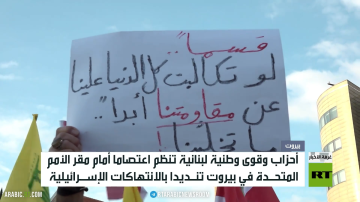 قسماً..
لو تكالبت كل الدنيا علينا
عن مقاومتنا أبداً..
ما تخلينا
بيروت
غرفة الأخبار
أحزاب وقوى وطنية لبنانية تنظم اعتصاما أمام مقر الأمم
المتحدة في بيروت تنديدا بالانتهاكات الإسرائيلية
RT
ARABIC.